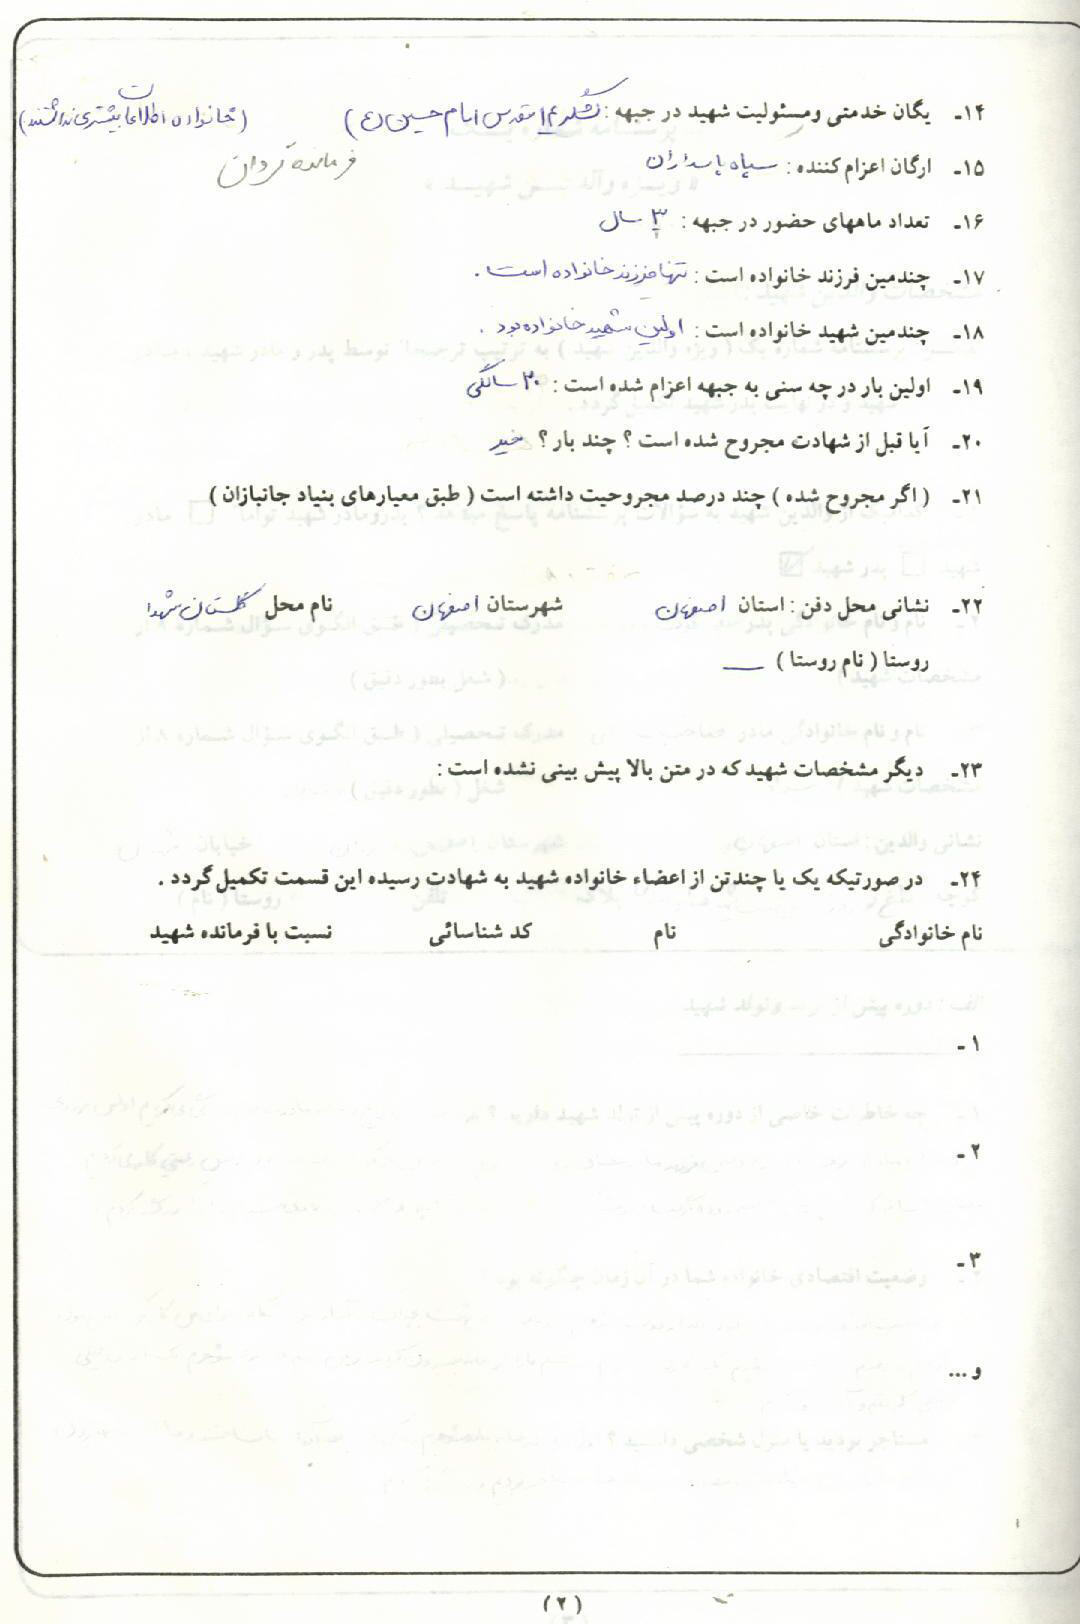 ۱۴ـ یگان خدمتی ومسئولیت شهید در جبهه : لشکر ۱۴ مقدس امام حسین (ع) (خانواده اطلاعات بیشتری نداشتند)
۱۵ـ ارگان اعزام کننده : سپاه پاسداران فرمانده گردان
۱۶ـ تعداد ماههای حضور در جبهه : ۳ سال
۱۷ـ چندمین فرزند خانواده است : تنها فرزند خانواده است .
۱۸ـ چندمین شهید خانواده است : اولین شهید خانواده بود .
۱۹ـ اولین بار در چه سنی به جبهه اعزام شده است : ۲۰ سالگی
۲۰ـ آیا قبل از شهادت مجروح شده است ؟ چند بار ؟ خیر
۲۱ـ ( اگر مجروح شده ) چند درصد مجروحیت داشته است ( طبق معیارهای بنیاد جانبازان )
۲۲ـ نشانی محل دفن : استان اصفهان شهرستان اصفهان نام محل گلستان شهدا
روستا ( نام روستا ) —
۲۳ـ دیگر مشخصات شهید که در متن بالا پیش بینی نشده است :
۲۴ـ در صورتیکه یک یا چندتن از اعضاء خانواده شهید به شهادت رسیده این قسمت تکمیل گردد .
نام خانوادگی نام کد شناسائی نسبت با فرمانده شهید
۱ ـ
۲ ـ
۳ ـ
و ...
( ۲ )